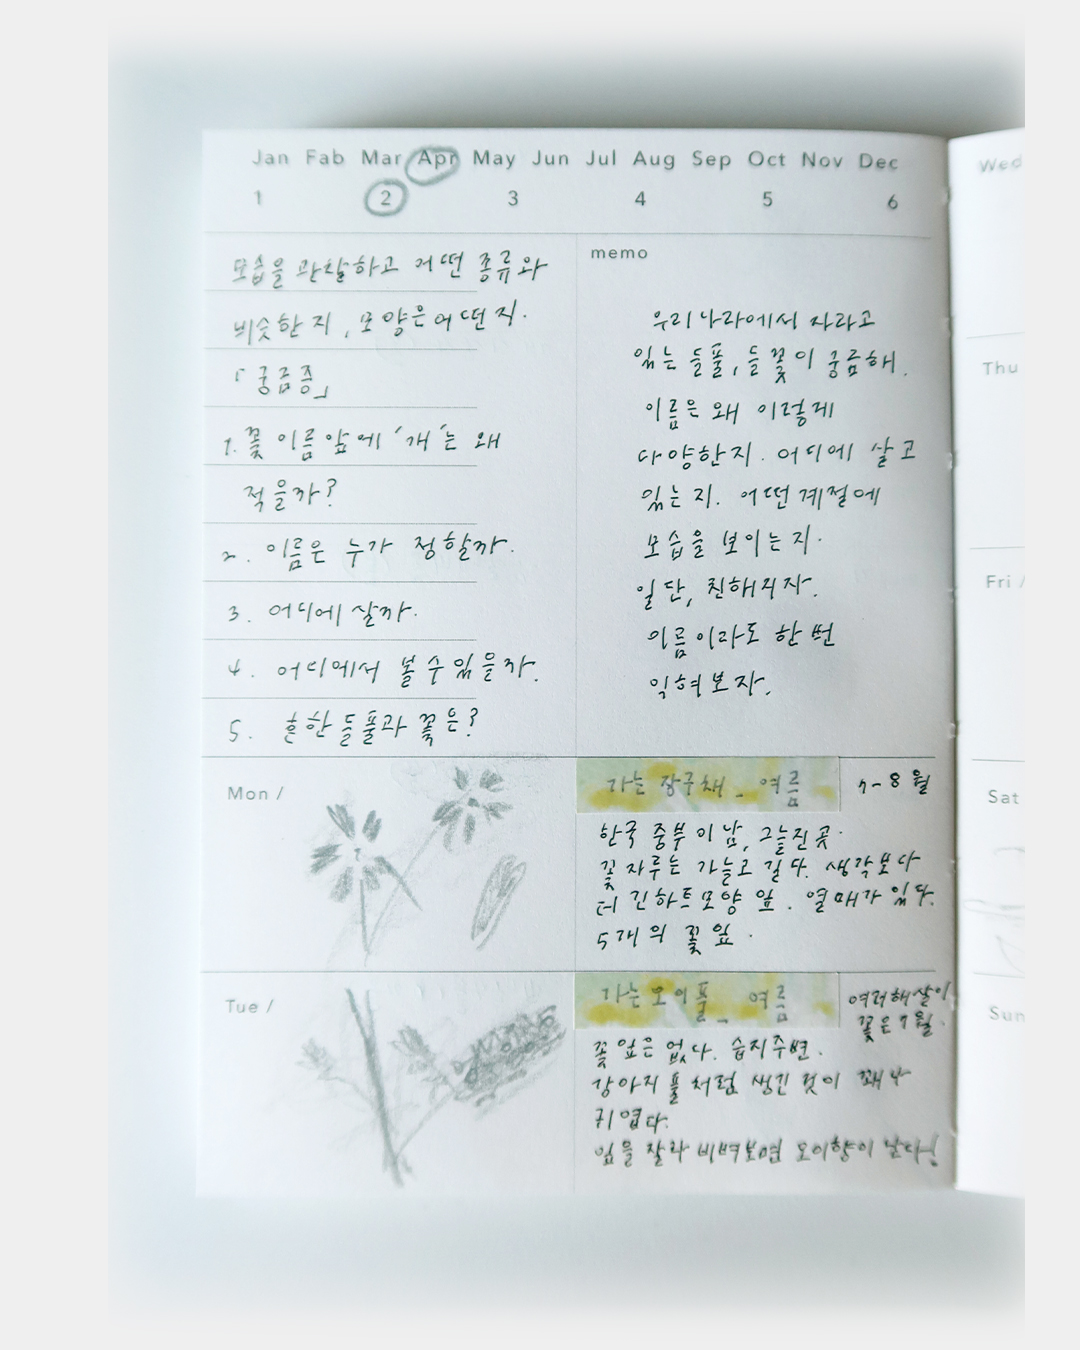 Jan Fab Mar Apr May Jun Jul Aug Sep Oct Nov Dec
1 2 3 4 5 6
모습을 관찰하고 어떤 종류와
비슷한지, 모양은 어떤지.
「궁금증」
1. 꽃 이름 앞에 '개'는 왜
적을까?
2. 이름은 누가 정할까.
3. 어디에 살까.
4. 어디에서 볼 수 있을까.
5. 흔한 들풀과 꽃은?
memo
우리나라에서 자라고
있는 들풀, 들꽃이 궁금해.
이름은 왜 이렇게
다양한지. 어디에 살고
있는지. 어떤 계절에
모습을 보이는지.
일단, 친해지자.
이름이라도 한 번
익혀보자.
Mon /
가는 장구채 - 여름
7-8월
한국 중부 이남, 그늘진 곳.
꽃자루는 가늘고 길다. 생각보다
더 긴 하트모양 잎. 열매가 있다.
5개의 꽃잎.
Tue /
가는오이풀 - 여름
여러해살이
꽃은 7월.
꽃잎은 없다. 습지주변.
강아지풀처럼 생긴 것이 꽤나
귀엽다.
잎을 잘라 비벼보면 오이향이 난다!
Wed
Thu
Fri /
Sat
Sun